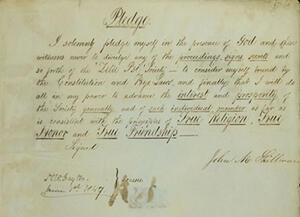 Pledge.
I solemnly pledge myself in the presence of God and these
witnesses never to divulge any of the proceedings, signs, secrets and
so forth of the Zelta Psi Society – to consider myself bound by
the Constitution and Bye Laws, and finally that I will do
all in my power to advance the interest and prosperity of
the Society generally and of each individual member as far as
is consistent with the principles of True Religion, True
Honor and True Friendship
Signed
John M Skillman
June 1st 1847